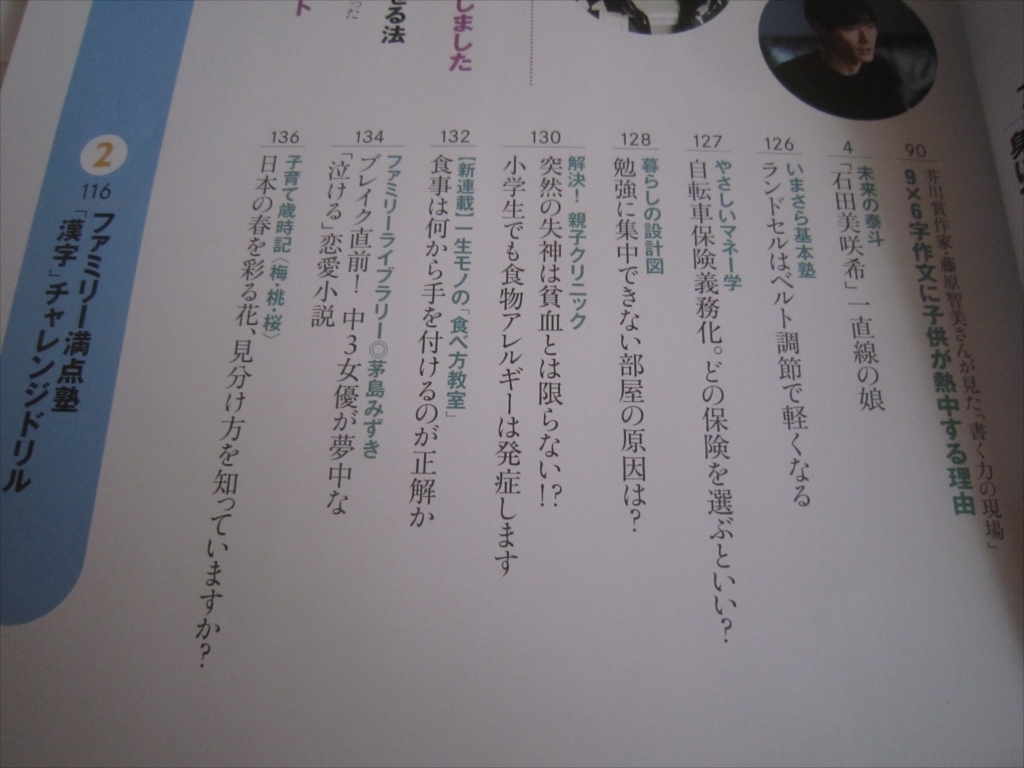 芥川賞作家・藤原智美さんが見た「書く力の現場」
90
9×6字作文に子供が熱中する理由
4
未来の泰斗
「石田美咲希」一直線の娘
126
いまさら基本塾
ランドセルはベルト調節で軽くなる
127
やさしいマネー学
自転車保険義務化。どの保険を選ぶといい？
128
暮らしの設計図
勉強に集中できない部屋の原因は？
130
解決！ 親子クリニック
突然の失神は貧血とは限らない!?
小学生でも食物アレルギーは発症します
132
【新連載】一生モノの「食べ方教室」
食事は何から手を付けるのが正解か
134
ファミリーライブラリー◎茅島みずき
ブレイク直前！ 中３女優が夢中な
「泣ける」恋愛小説
136
子育て歳時記〈梅・桃・桜〉
日本の春を彩る花、見分け方を知っていますか？
しました
せる法
った
ト
2
116
ファミリー満点塾
「漢字」チャレンジドリル